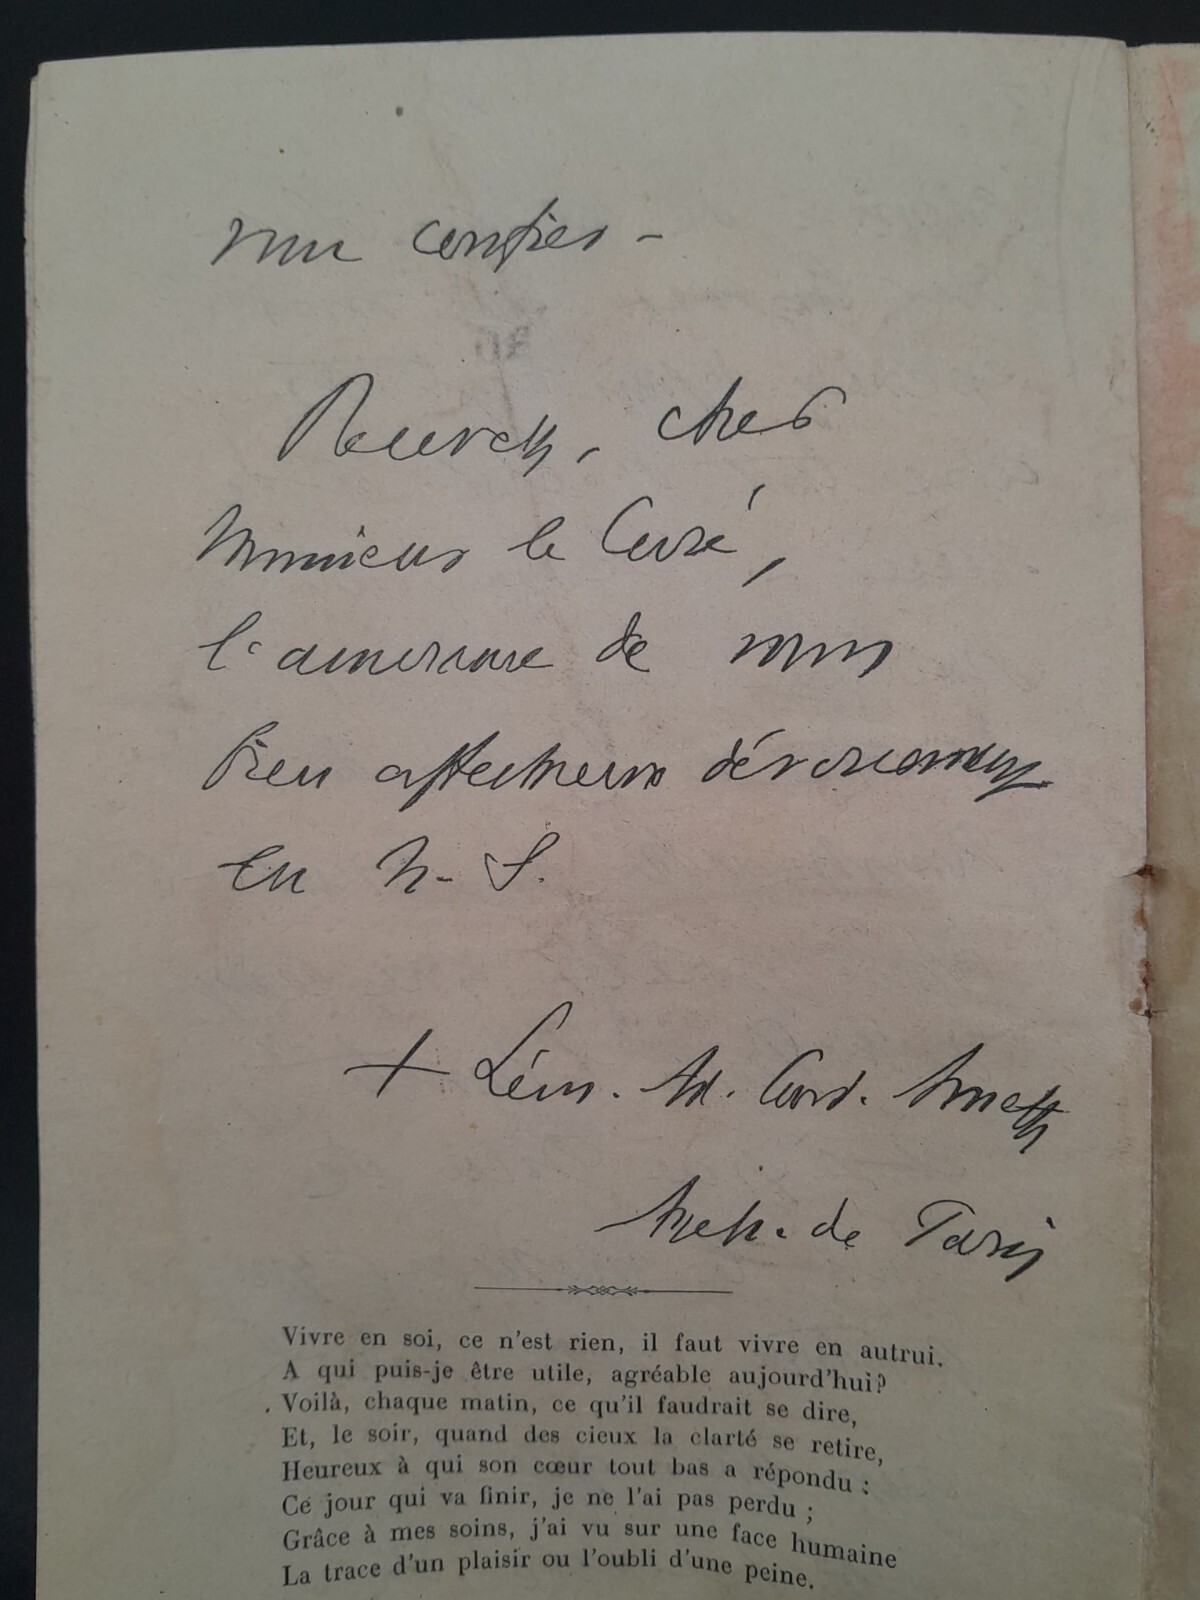 vous confier -
Recevez, cher
Monsieur le Curé,
l'assurance de mon
bien affectueux dévouement
en N. S.
+ Léon. Ad. Card. Amette
Arch. de Paris
Vivre en soi, ce n'est rien, il faut vivre en autrui.
A qui puis-je être utile, agréable aujourd'hui?
Voilà, chaque matin, ce qu'il faudrait se dire,
Et, le soir, quand des cieux la clarté se retire,
Heureux à qui son cœur tout bas a répondu :
Ce jour qui va finir, je ne l'ai pas perdu ;
Grâce à mes soins, j'ai vu sur une face humaine
La trace d'un plaisir ou l'oubli d'une peine.